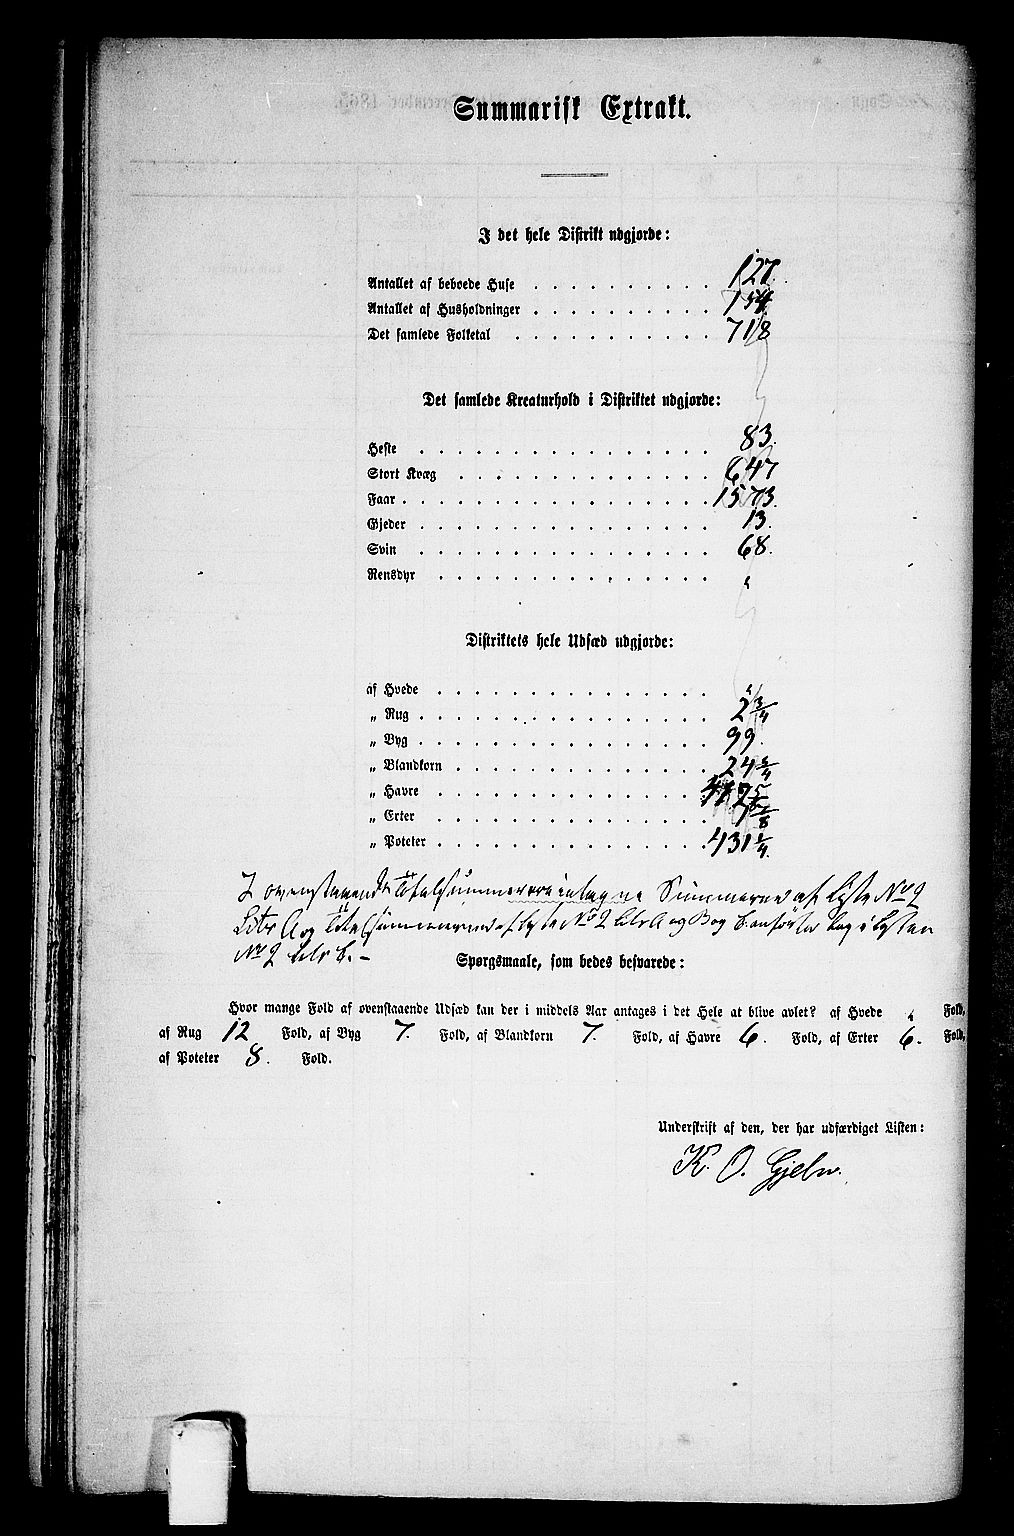 Summarisk Extrakt.
I det hele Distrikt udgjorde:
Antallet af beboede Huse . . . . . . . . . . 127.
Antallet af Husholdninger . . . . . . . . . . 154
Det samlede Folketal . . . . . . . . . . . 718
Det samlede Kreaturhold i Distriktet udgjorde:
Heste . . . . . . . . . . . . . . . . 83.
Stort Kvæg . . . . . . . . . . . . . . 647
Faar . . . . . . . . . . . . . . . . . 1573.
Gjeder . . . . . . . . . . . . . . . . 13.
Svin . . . . . . . . . . . . . . . . 68.
Rensdyr . . . . . . . . . . . . . . . "
Distriktets hele Udsæd udgjorde:
af Hvede . . . . . . . . . . . . . . . "
„ Rug . . . . . . . . . . . . . . . . 2 3/4
„ Byg . . . . . . . . . . . . . . . . 99.
„ Blandkorn . . . . . . . . . . . . . . 24
„ Havre . . . . . . . . . . . . . . .
„ Erter . . . . . . . . . . . . . . .
„ Poteter . . . . . . . . . . . . . . . 431 1/4.
I ovenstaaende Totalsummer ere intagne Summerne af Liste No 2
Litr A og Totalsummerne af Liste No 2 Litr A og B og C anførte bag i Listen
No 2 Litr C. –
Spørgsmaale, som bedes besvarede:
Hvor mange Fold af ovenstaaende Udsæd kan der i middels Aar antages i det Hele at blive avlet? af Hvede " Fold,
af Rug 12 Fold, af Byg 7. Fold, af Blandkorn 7. Fold, af Havre 6. Fold, af Erter 6. Fold,
af Poteter 8. Fold.
Underskrift af den, der har udfærdiget Listen:
K. O. Gjelw.